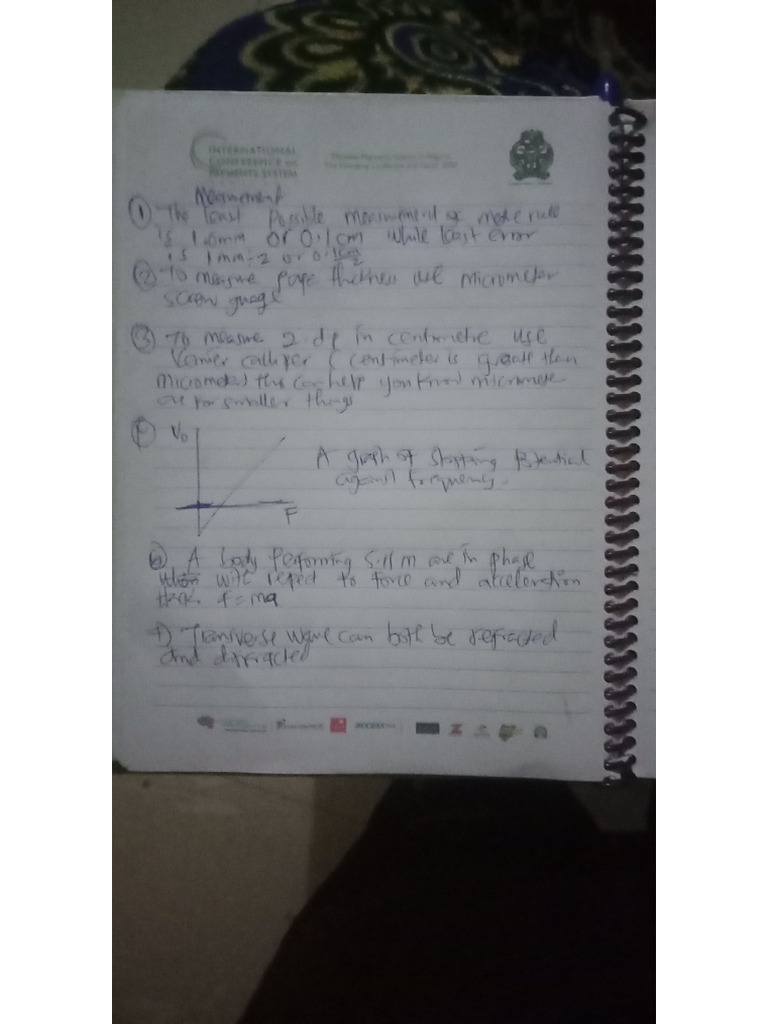 INTERNATIONAL
CONFERENCE on
PAYMENTS SYSTEM
Measurement
① The least possible measurement of metre rule
is 1.0mm or 0.1cm while least error
is 1mm÷2 or 0.1cm/2
② To measure page thickness use micrometer
screw guage
③ To measure 2 dp in centimetre use
Vernier calliper ( centimeter is greater than
micrometer) this can help you know micrometer
are for smaller things
V₀
A graph of stopping potential
against frequency.
F
⑥ A body performing S.H.M are in phase
with respect to force and acceleration
f = ma
7) Transverse wave can both be refracted
and diffracted